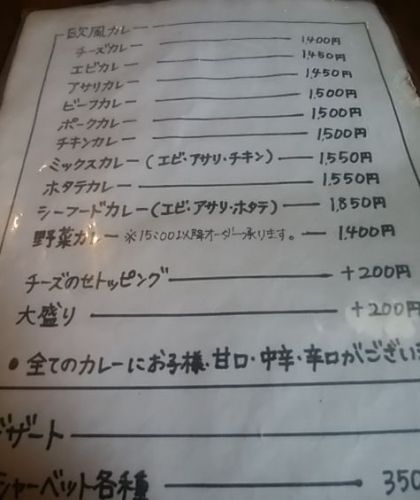 欧風カレー
チーズカレー 1,400円
エビカレー 1,450円
アサリカレー 1,450円
ビーフカレー 1,500円
ポークカレー 1,500円
チキンカレー 1,500円
ミックスカレー(エビ・アサリ・チキン) 1,550円
ホタテカレー 1,550円
シーフードカレー(エビ・アサリ・ホタテ) 1,850円
野菜カレー ※15:00以降オーダー承ります。 1,400円
チーズのせトッピング +200円
大盛り +200円
● 全てのカレーにお子様・甘口・中辛・辛口がござい
デザート
シャーベット各種 350